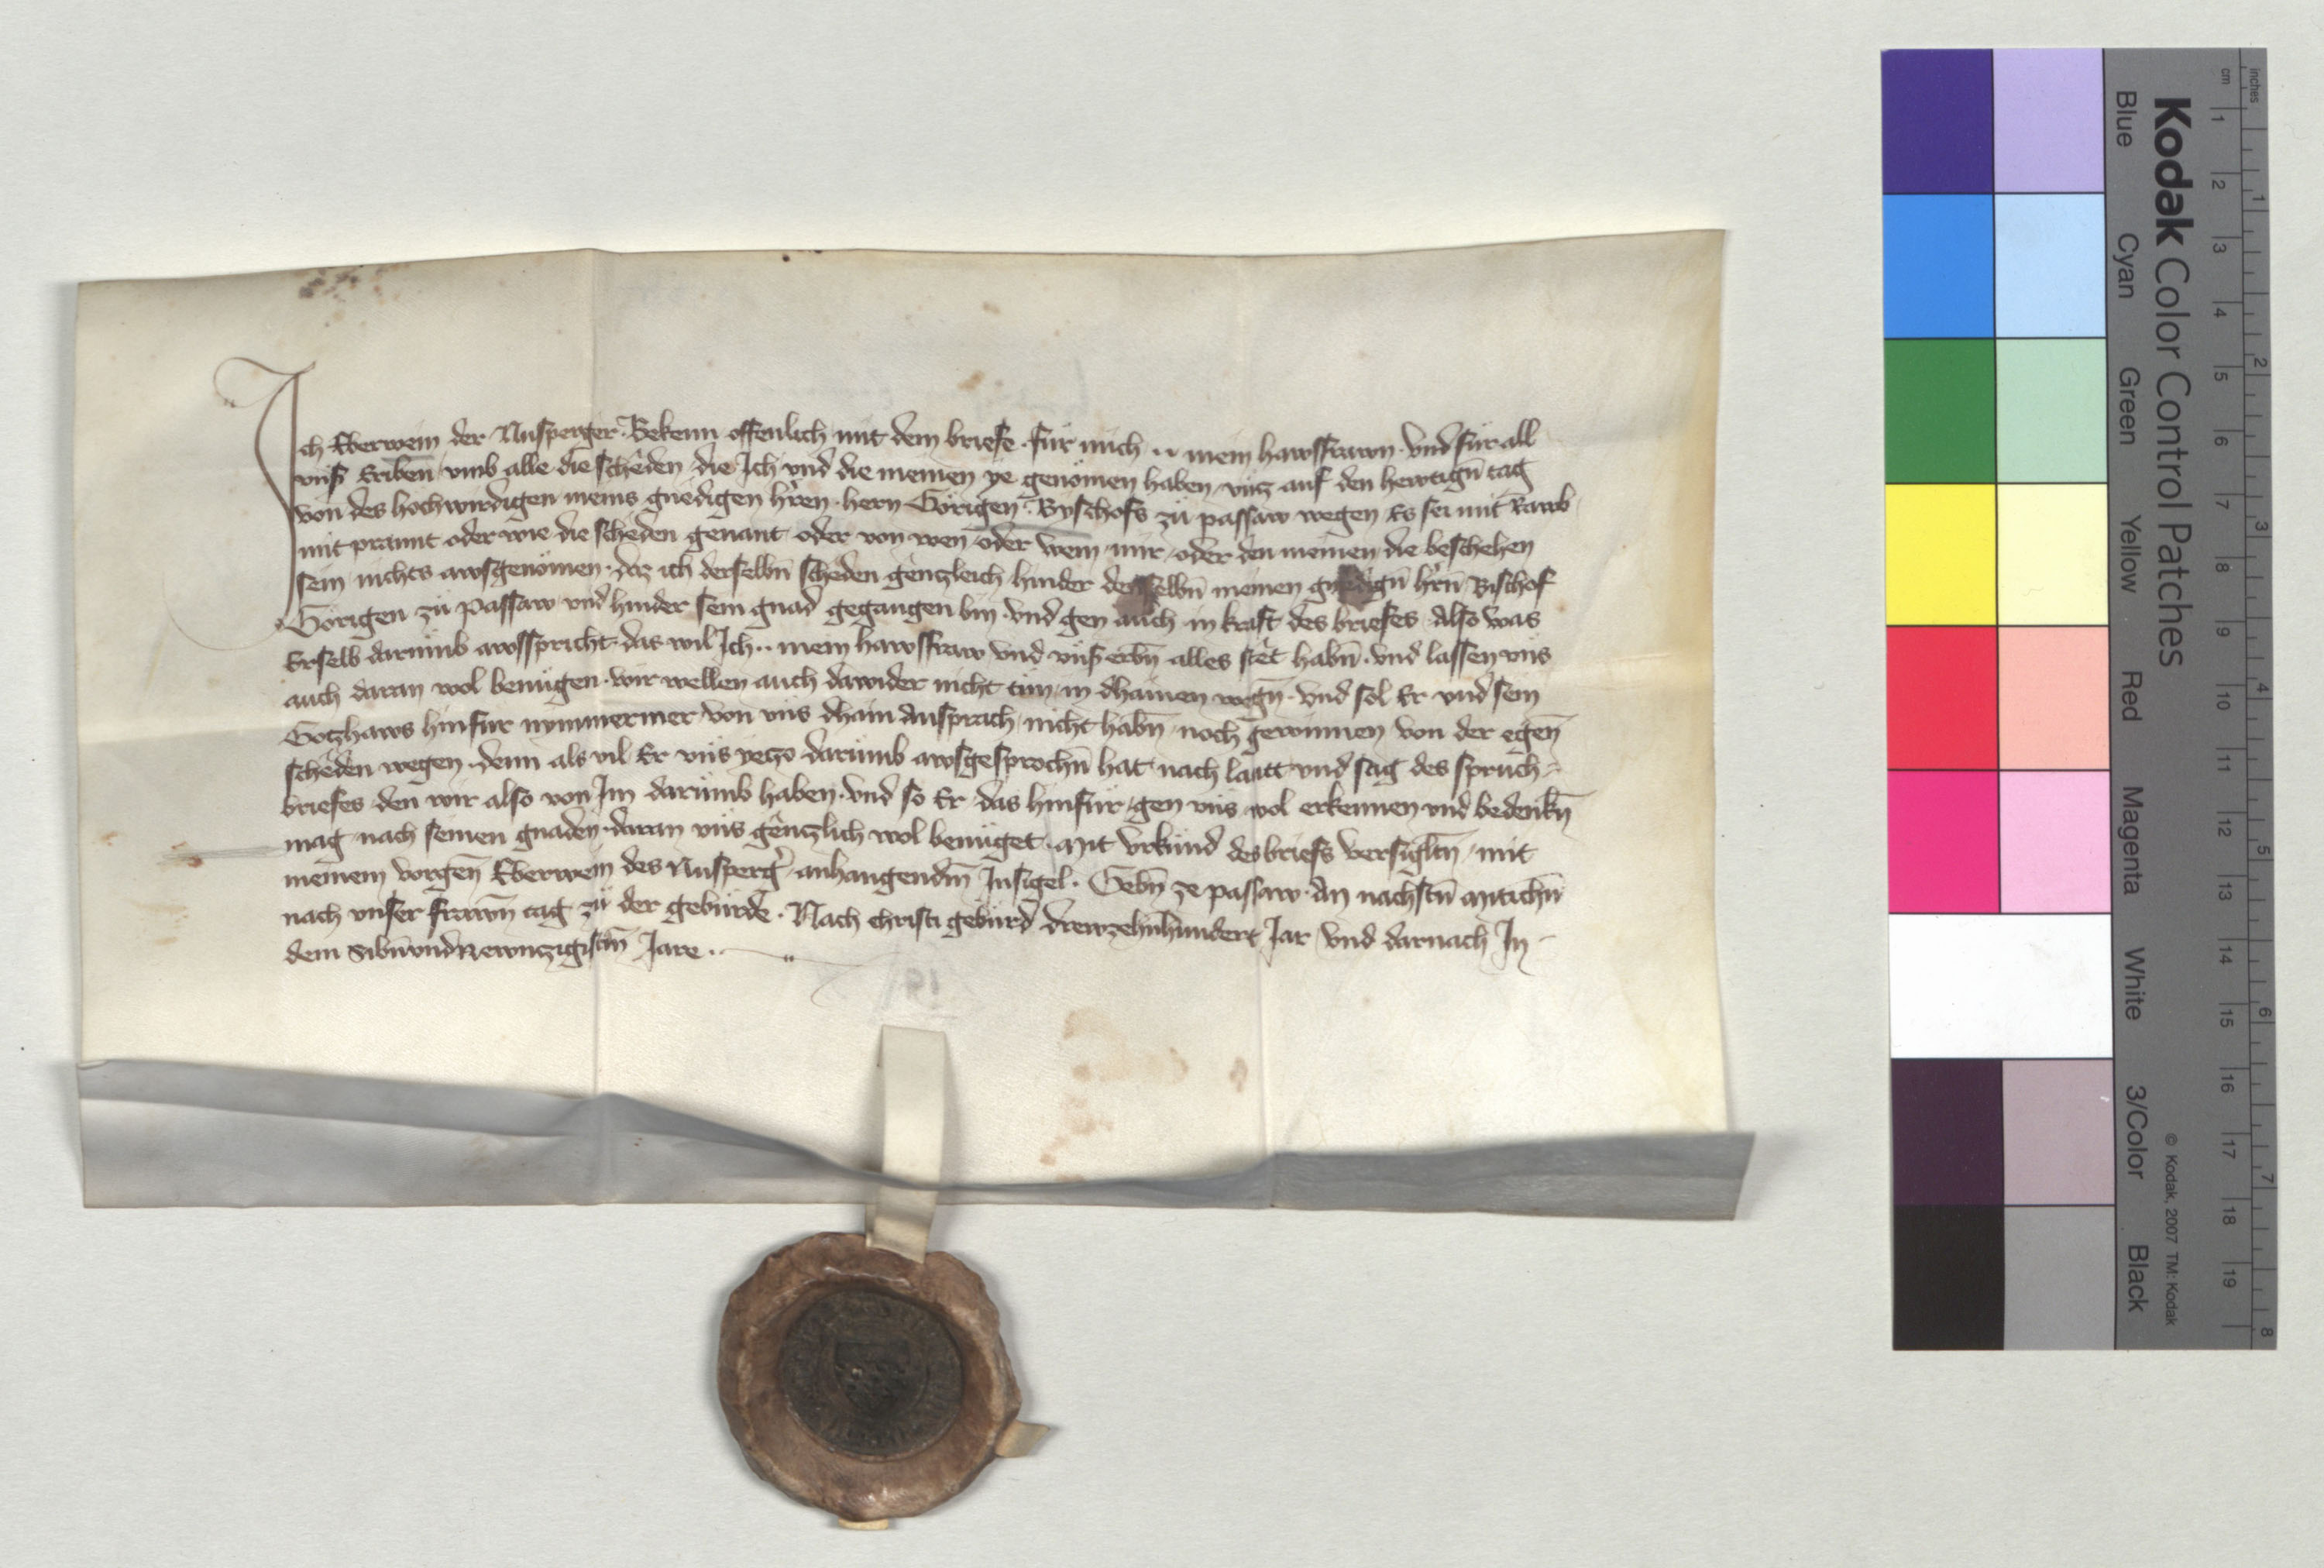 Ich Eberwein der Nusperger Bekenn offenlich mit dem briefe · für mich ·· mein hawsfrawn · vnd für all
vnß Eriben̄ vmb alle die schëden die Ich vnd die meinen ye genömen haben vncz auf den hewtign̄ tag
von des hochwirdigen meins gnedigen h'ren · hern Görigen Byschofs zü passaw wegen Es sei mit Rawb
mit prannt oder wie die scheden genant oder von wen oder wem mir oder den meinen die beschehen
sein nichts awsgenömen · daz ich derselbn̄ scheden gënczleich hinder desselbn̄ meinen gnedign̄ h'rn̄ Bischof
Görigen zü Passaw vnd hinder sein gnad gegangen bin · vnd gen auch in kraft des briefes Also was
Erselb darümb awsspricht · das wil Ich ·· mein hawsfraw vnd vnß erbn̄ alles stët habn̄ · vnd lassen vns
auch daran wol benügen · wir wellen auch dawider nicht tün in dhainen wegn̄ · vnd sol Er vnd sein
Goczhaws hinfür nymmermer von vns dhain Ansprach nicht habn̄ noch gewinnen von der egen̄
schëden wegen · denn als vil Er vns yeczo darümb awsgesprochn̄ hat nach lautt vnd sag des spruch=
briefes den wir also von Im darümb haben · vnd so Er das hinfür gen vns wol erkennen vnd bedenkn̄
mag nach seinen gnaden · daran vns gënczlich wol benüget · Mit vrkünd des briefs versigltn̄ mit
meinem vorgen̄ Eberwein des Nusperg' anhangendm̄ Insigel · Gebn̄ ze passaw · An nachstn̄ Mitichn̄
nach vnser frawn̄ tag zü der gebürde · Nach christi gebürd drewzehnhundert Jar vnd darnach In
dem Sibn̄vndNewnczigistm̄ Jare ··
19
Kodak Color Control Patches
Blue Cyan Green Yellow Red Magenta White 3/Color Black
© Kodak, 2007 TM: Kodak
cm 1 2 3 4 5 6 7 8 9 10 11 12 13 14 15 16 17 18 19
inches 1 2 3 4 5 6 7 8